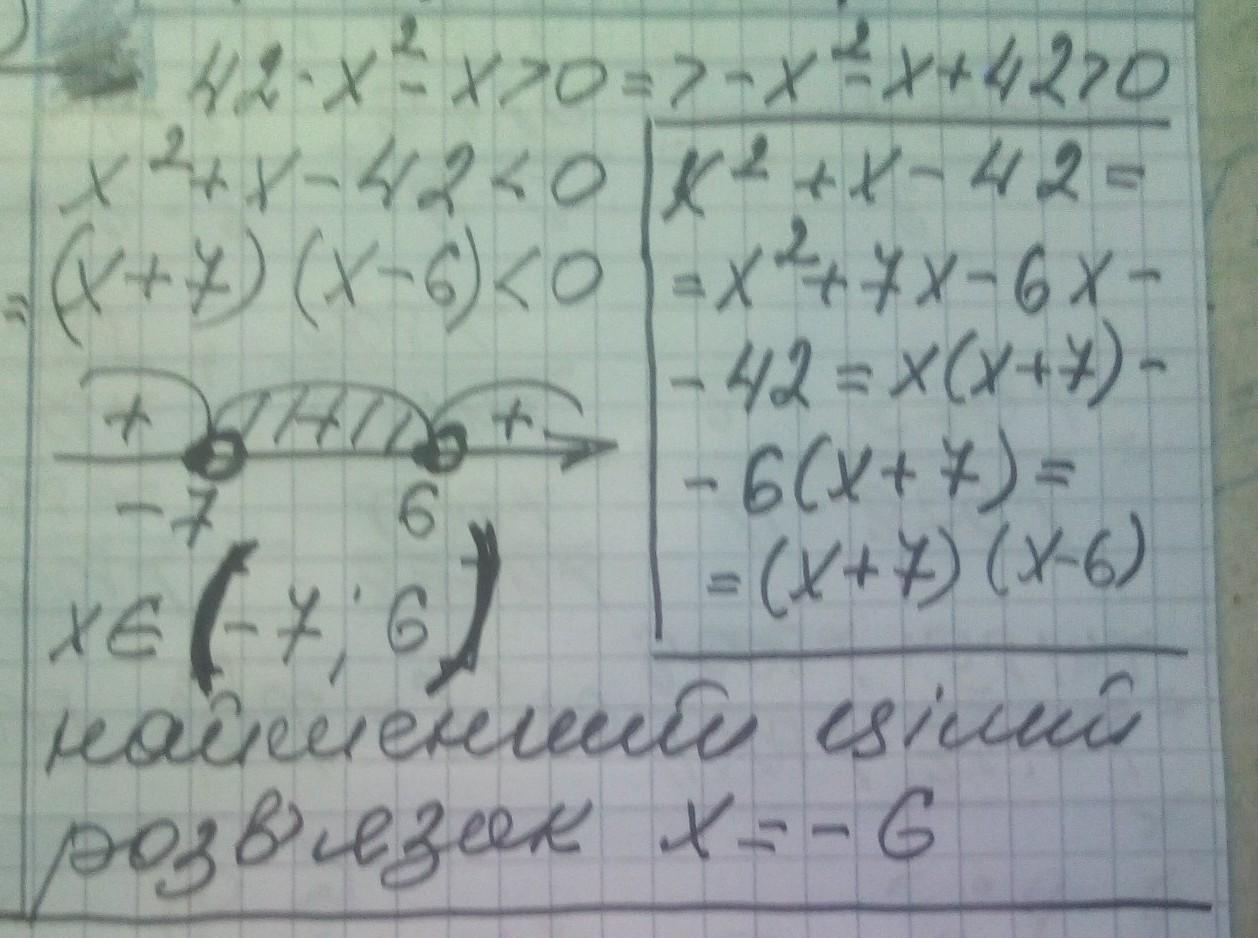 42-x²-x>0=>-x²-x+42>0
x²+x-42<0
=(x+7)(x-6)<0
+ + +
-7 6
x∈(-7; 6)
x²+x-42=
=x²+7x-6x-
-42=x(x+7)-
-6(x+7)=
=(x+7)(x-6)
найменший цілий
розвязок x=-6